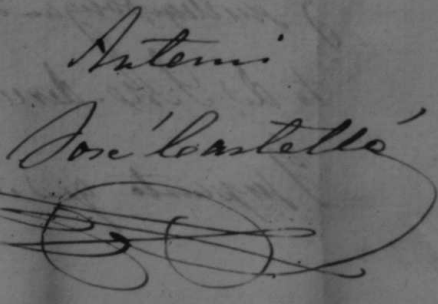 Ante mi
José Castelló